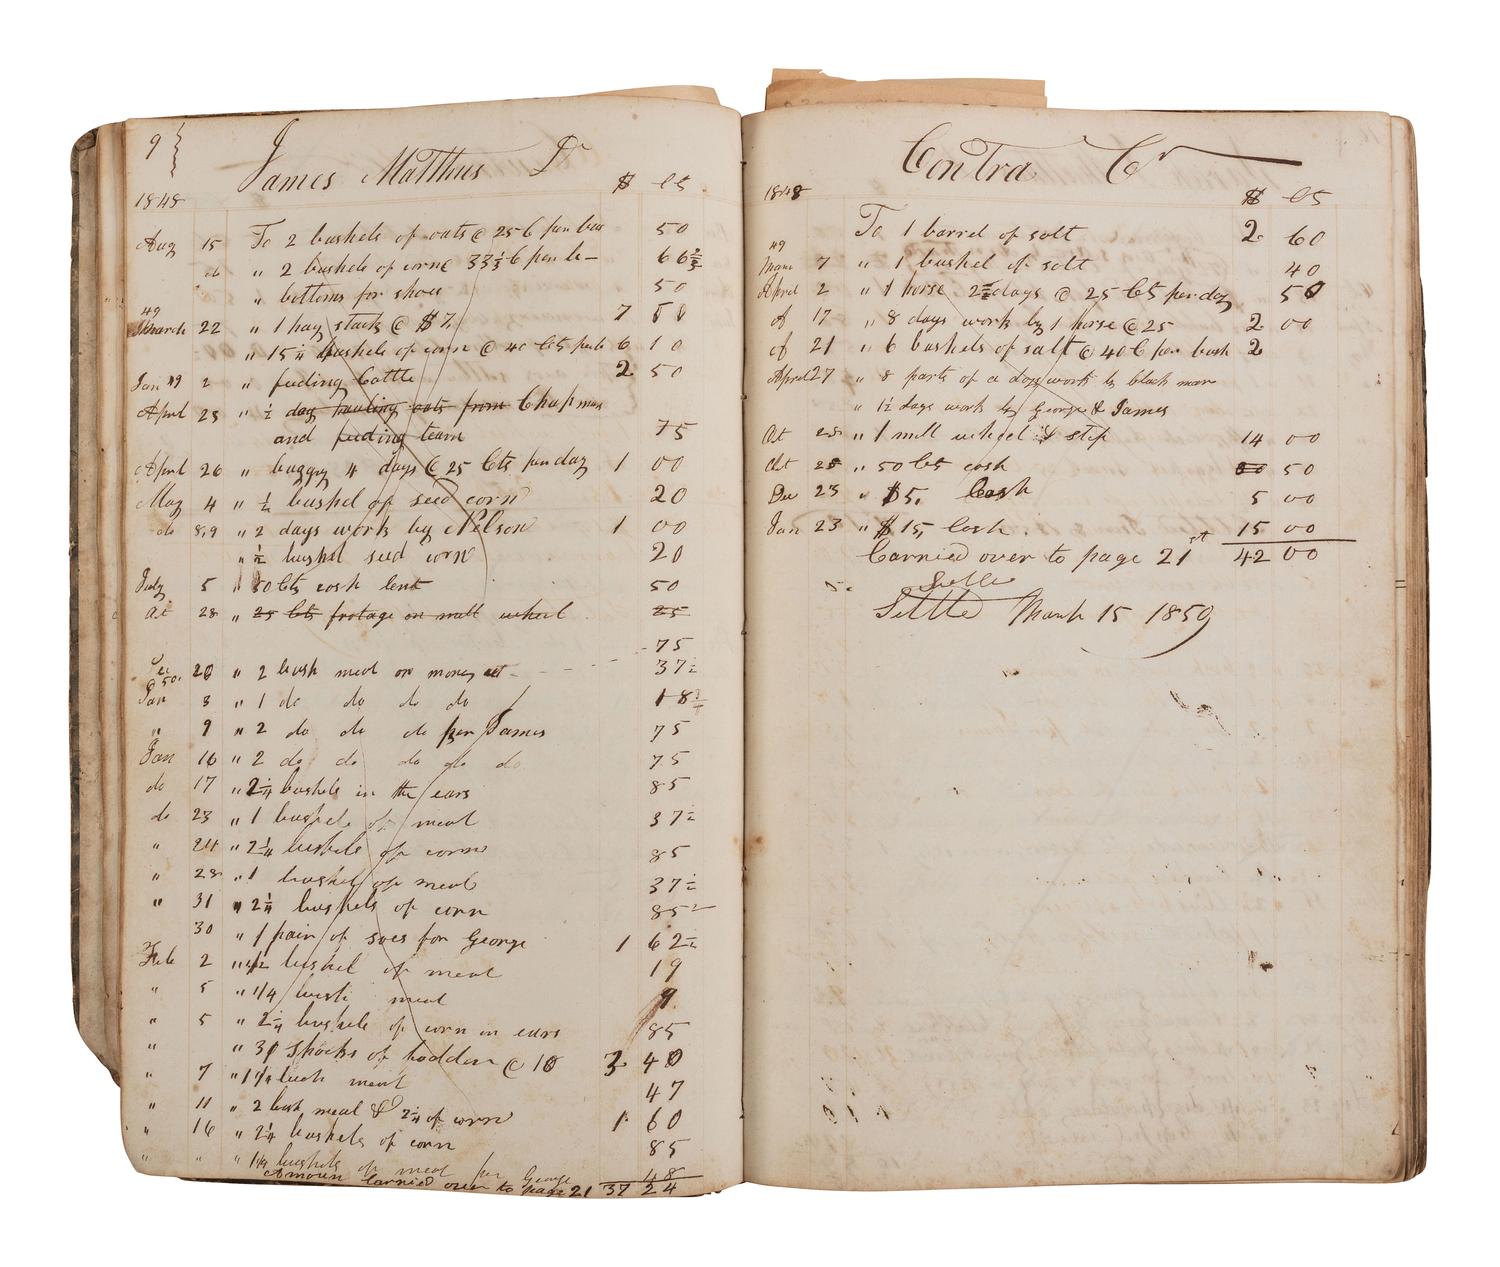 9
James Matthus Dr
$ cts
1848
Aug 15 To 2 bushels of oats @ 25 c per bus 50
do " 2 bushels of corne 33 1/3 c per b— 66 2/3
" bottoms for shoes 50
49
March 22 " 1 hay stack @ $7. 7 50
" 15 1/4 bushels of corn @ 40 cts per b 6 10
Jan 49 2 " feeding Cattle 2 50
April 25 " 1/2 day hauling oats from Chapman
and feeding team 75
April 26 " buggy 4 days @ 25 cts per day 1 00
May 4 " 1/2 bushel of seed corn 20
do 8,9 " 2 days work by Nelson 1 00
" 1/2 bushel seed corn 20
July 5 " 50 cts cash lent 50
at 28 " 25 cts frotage on mill wheel 25
75
20 " 2 bush meal on money 37 1/2
50.
Jan 3 " 1 do do do do 18 3/4
" 9 " 2 do do do per James 75
Jan 16 " 2 do do do do do 75
do 17 " 2 1/4 bushels in the ears 85
do 23 " 1 bushel of meal 37 1/2
" 24 " 2 1/4 bushels of corn 85
" 28 " 1 bushel of meal 37 1/2
" 31 " 2 1/4 bushels of corn 85
30 " 1 pair of soes for George 1 62 1/2
Feb 2 " 1/2 bushel of meal 19
" 5 " 1/4 meal 9
" 5 " 2 1/4 bushels of corn in ears 85
" " shocks of foddar @ 10 3 40
" 7 " 1 1/4 bush meal 47
" 11 " 2 bush meal & 2 1/4 of corn 1 60
" 16 " 2 1/4 bushels of corn 85
" " " 1 1/4 bushels of meal per George 48
Amoun Carried over to page 21 37 24
Contra Cr
1848 $ cts
To 1 barrel of salt 2 60
49
7 " 1 bushel of salt 40
April 2 " 1 horse 2 days @ 25 cts per day 50
of 17 " 8 days work by 1 horse @ 25 2 00
of 21 " 6 bushels of salt @ 40 c per bush 2
April 27 " 8 parts of a day work by black man
" 1 1/2 days work by George & James
at 28 " 1 mill wheel & step 14 00
at 28 " 50 cts cash 50
Dec 23 " $5, Cash 5 00
Jan 23 " $15, Cash 15 00
Carried over to page 21st 42 00
Settle
Settle March 15 1850